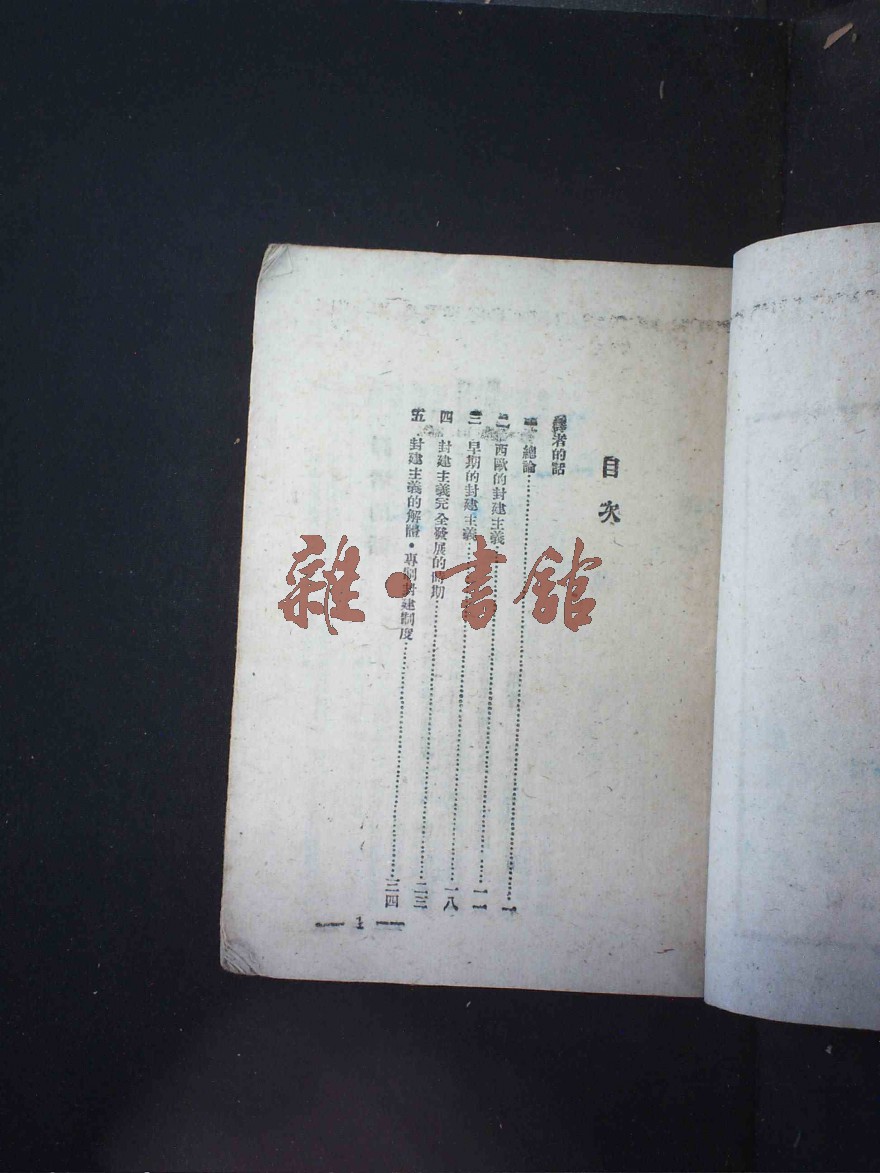 目次
譯者的話
一 總論……………………一
二 西歐的封建主義……………………一一
三 早期的封建主義……………………一八
四 封建主義完全發展的時期……………………二三
五 封建主義的解體・專制封建制度……………………三四
— 1 —
雜・書館